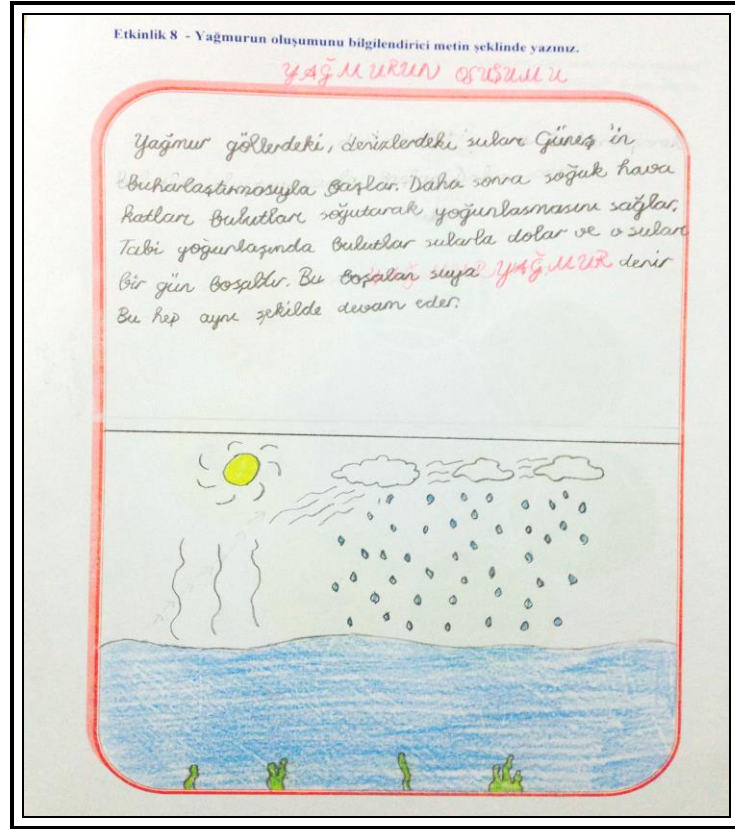 Etkinlik 8 - Yağmurun oluşumunu bilgilendirici metin şeklinde yazınız.
YAĞMURUN OLUŞUMU
Yağmur göllerdeki, denizlerdeki suları Güneş'in
buharlaştırmasıyla başlar. Daha sonra soğuk hava
katları bulutları soğutarak yoğunlaşmasını sağlar.
Tabi yoğunlaşında bulutlar sularla dolar ve o suları
bir gün boşaltır. Bu boşalan suya YAĞMUR denir
Bu hep aynı şekilde devam eder.